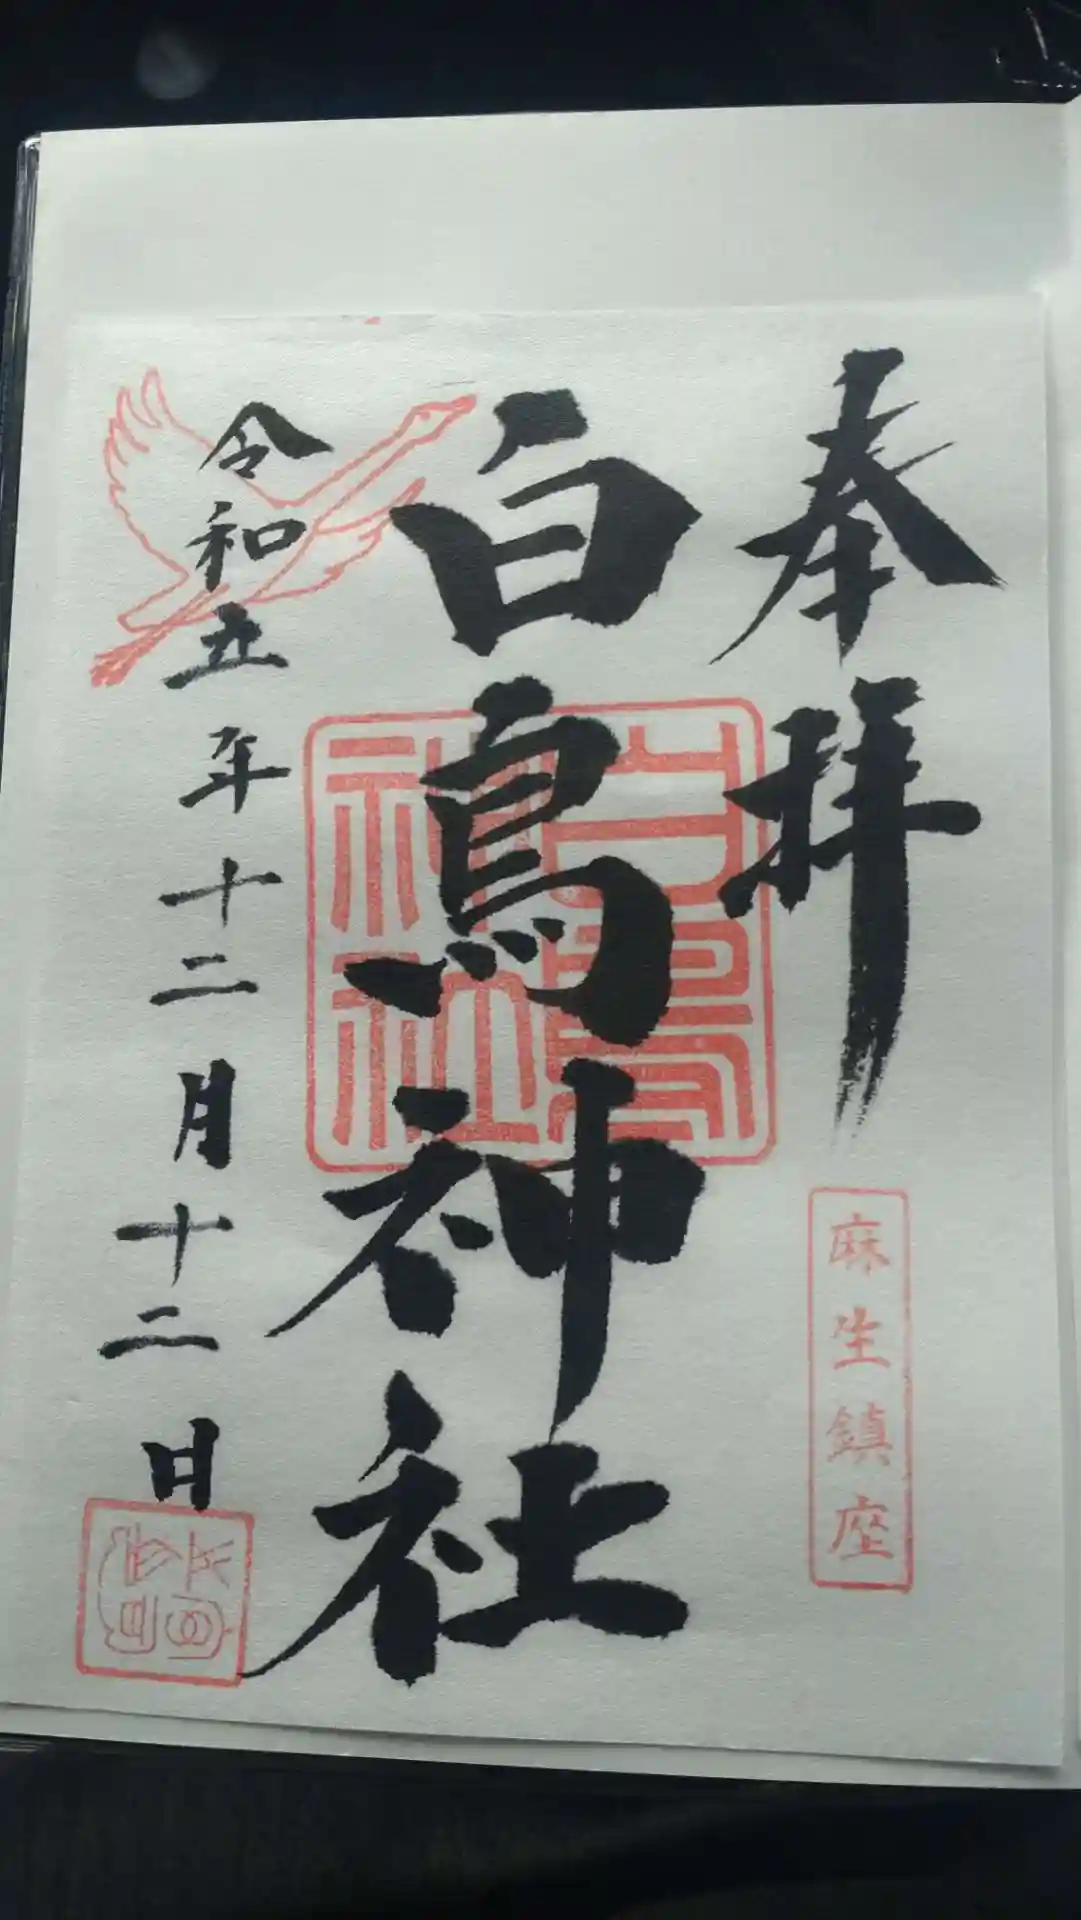 奉拝
麻生鎮座
白鳥神社
白鳥神社
令和五年十二月十二日